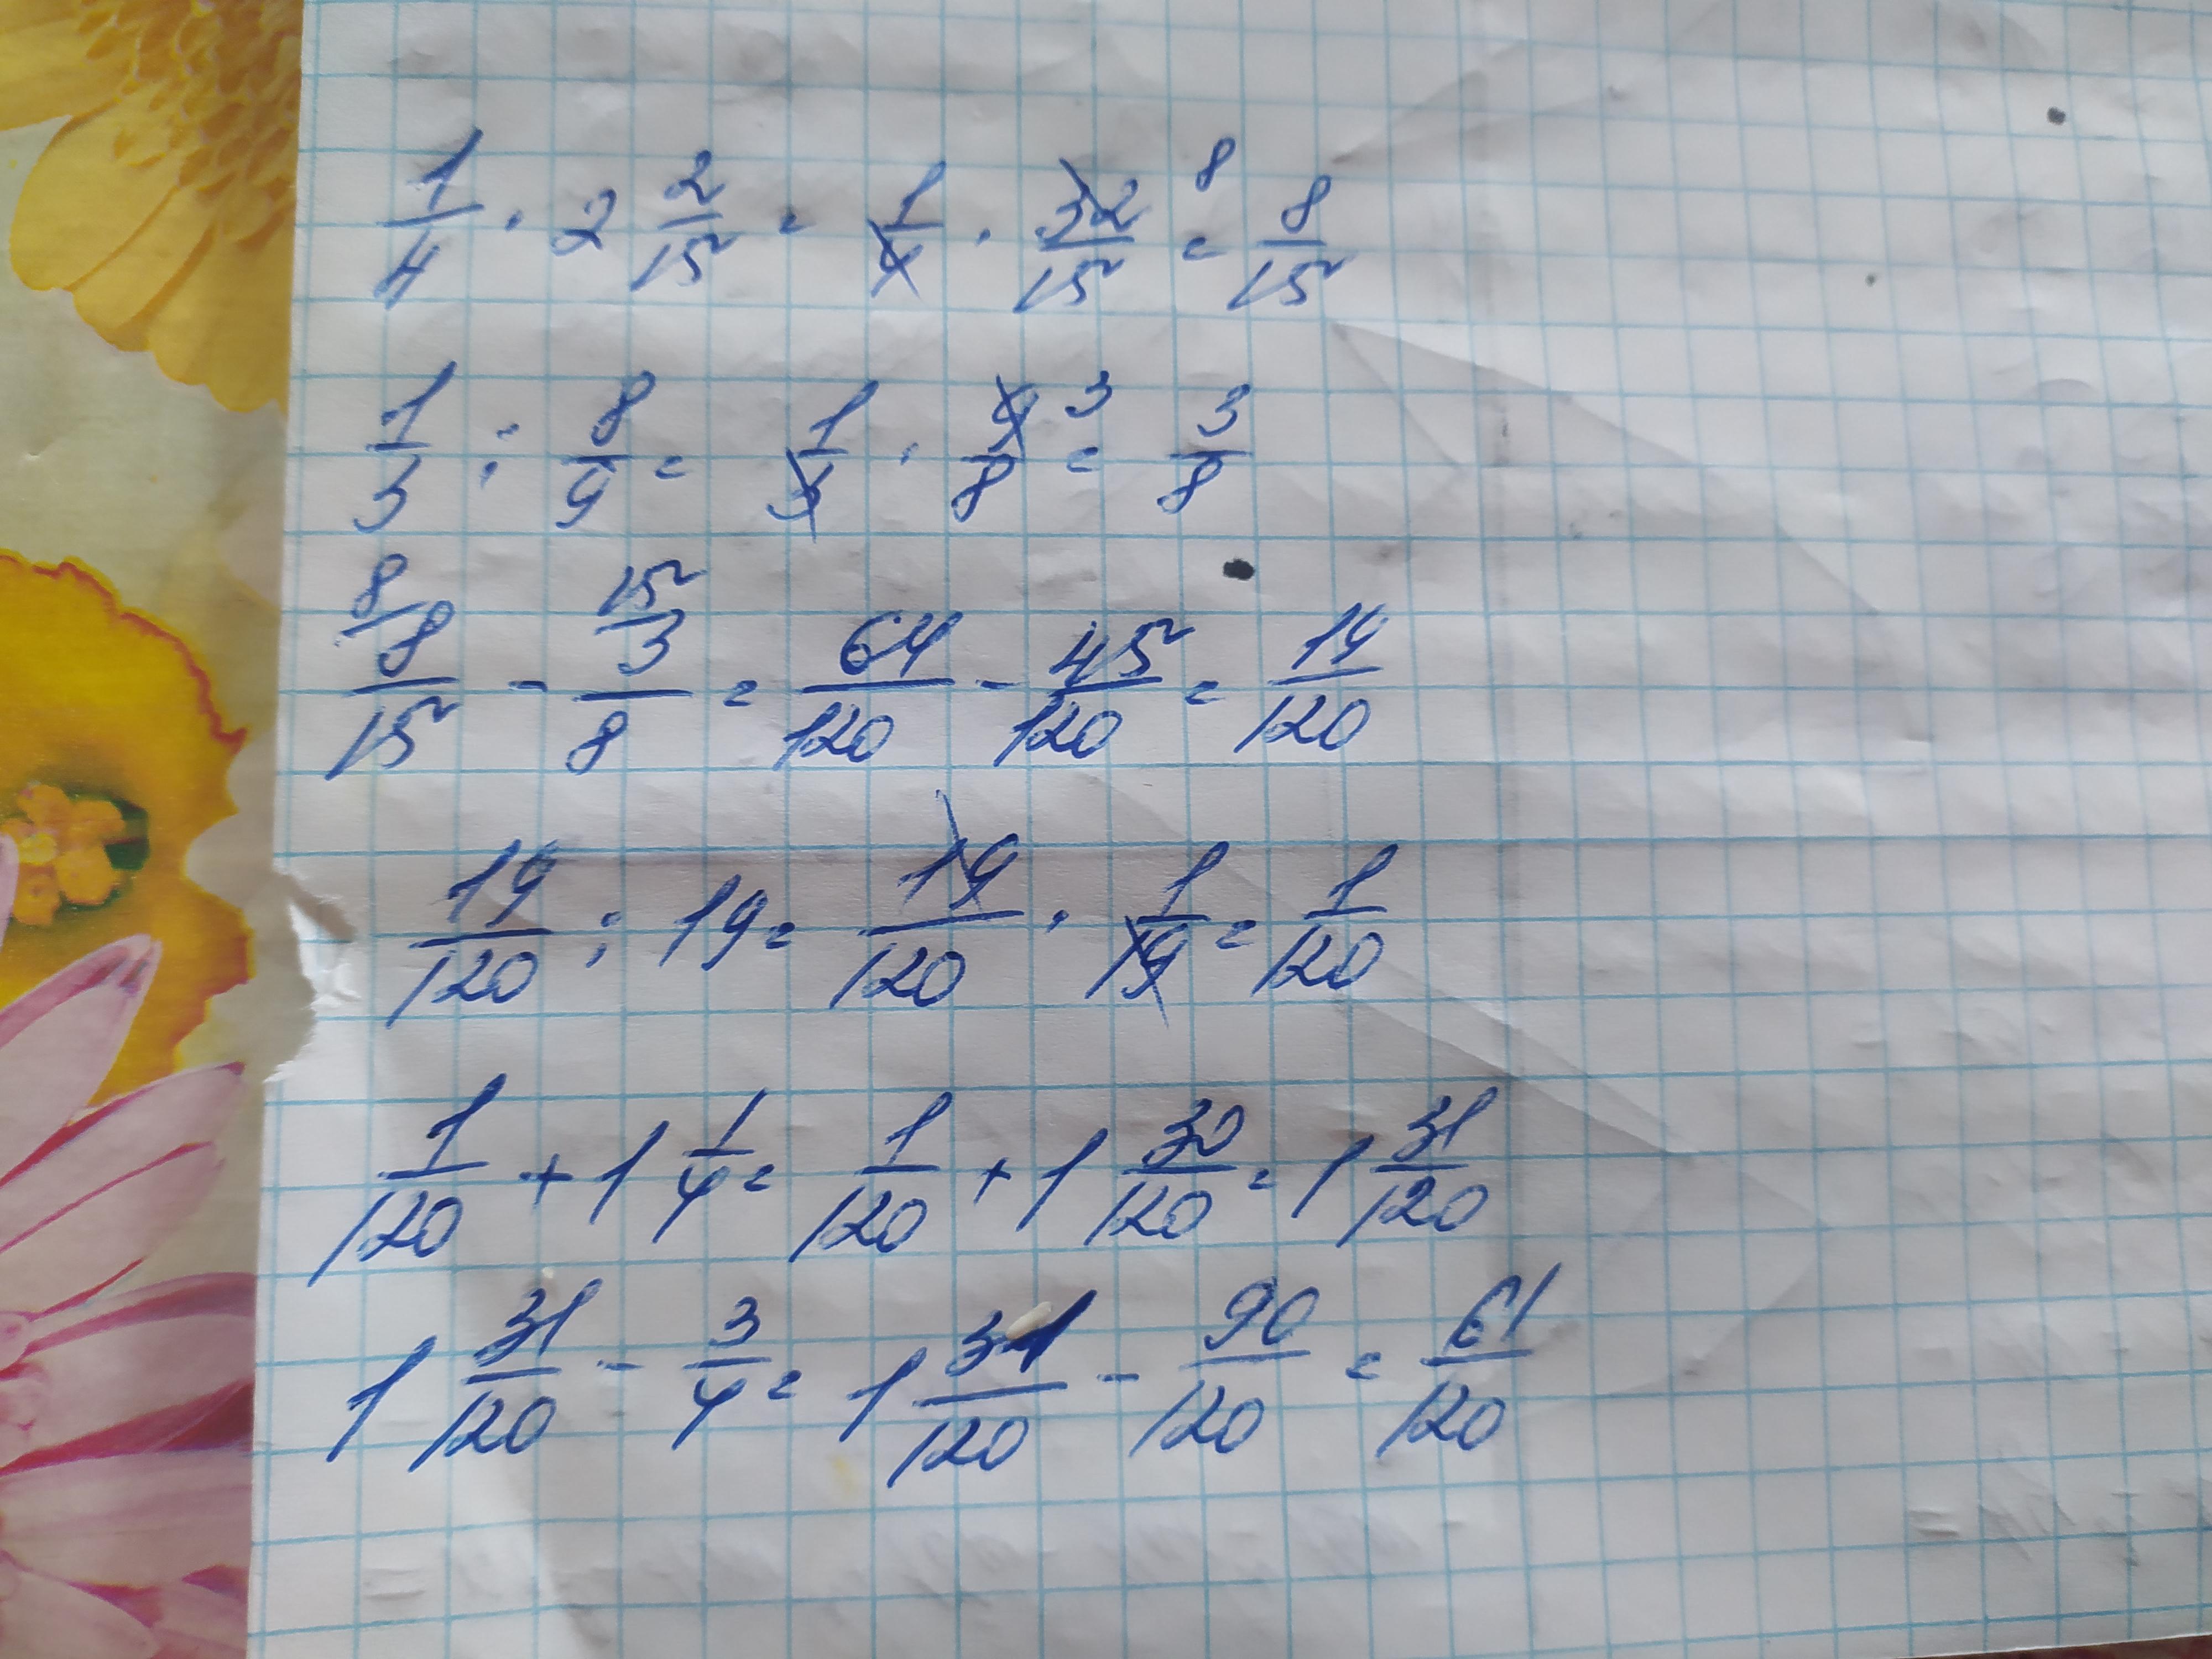 1/4 · 2 2/15 = 1/4 · 32/15 8 = 8/15
1/3 : 8/9 = 1/3 · 9/8 3 = 3/8
8 8/15 - 15 3/8 = 64/120 - 45/120 = 19/120
19/120 : 19 = 19/120 · 1/19 = 1/120
1/120 + 1 1/4 = 1/120 + 1 30/120 = 1 31/120
1 31/120 - 3/4 = 1 31/120 - 90/120 = 61/120